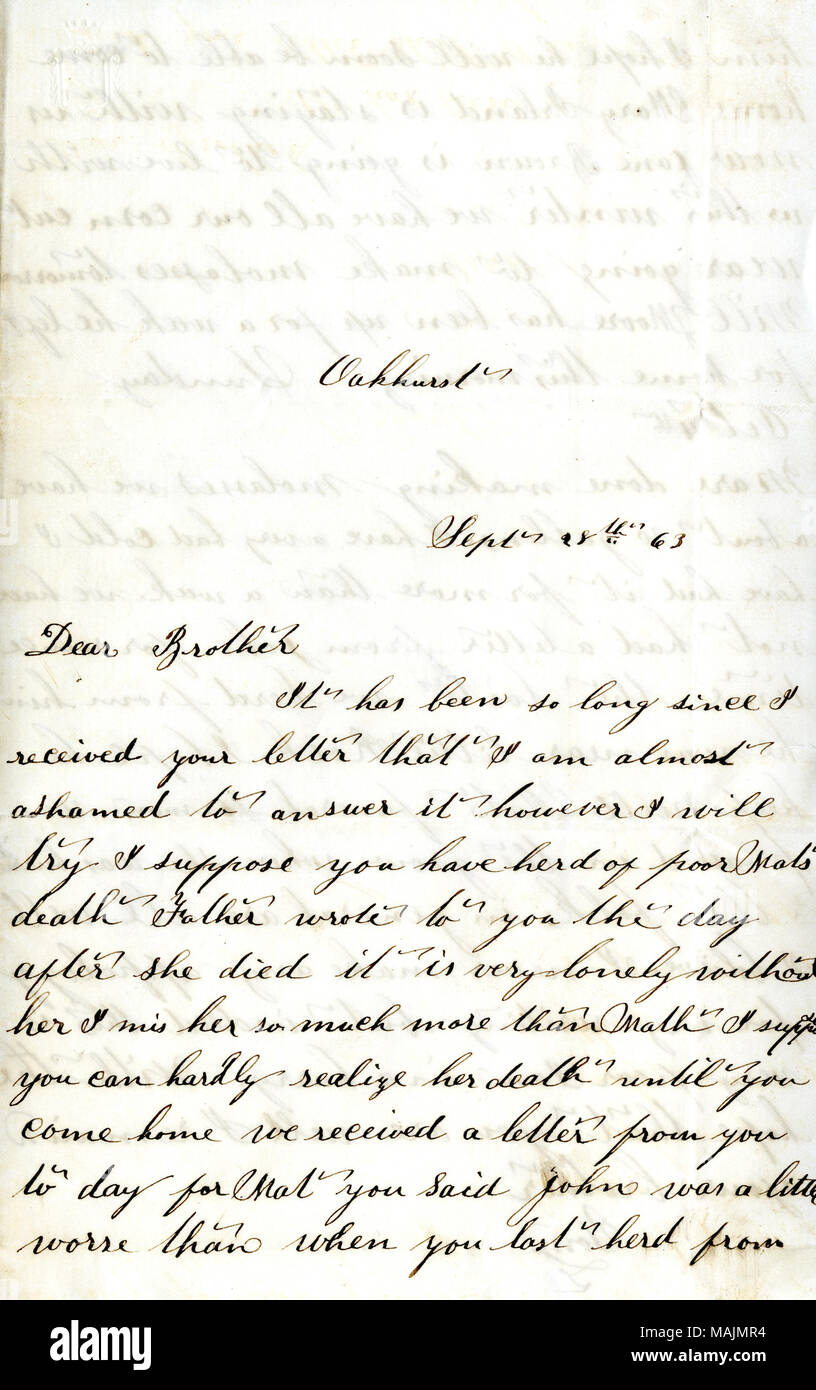 Oakhurst
Sept 28th 63
Dear Brother
It has been so long since I
received your letter that I am almost
ashamed to answer it however I will
try I suppose you have herd of poor Mats
death Father wrote to you the day
after she died it is very lonely without
her I mis her so much more than Math I
you can hardly realize her death until you
come home we received a letter from you
to day for Mat you said John was a little
worse than when you last herd from
alamy
Image ID: MAJMR4
www.alamy.com